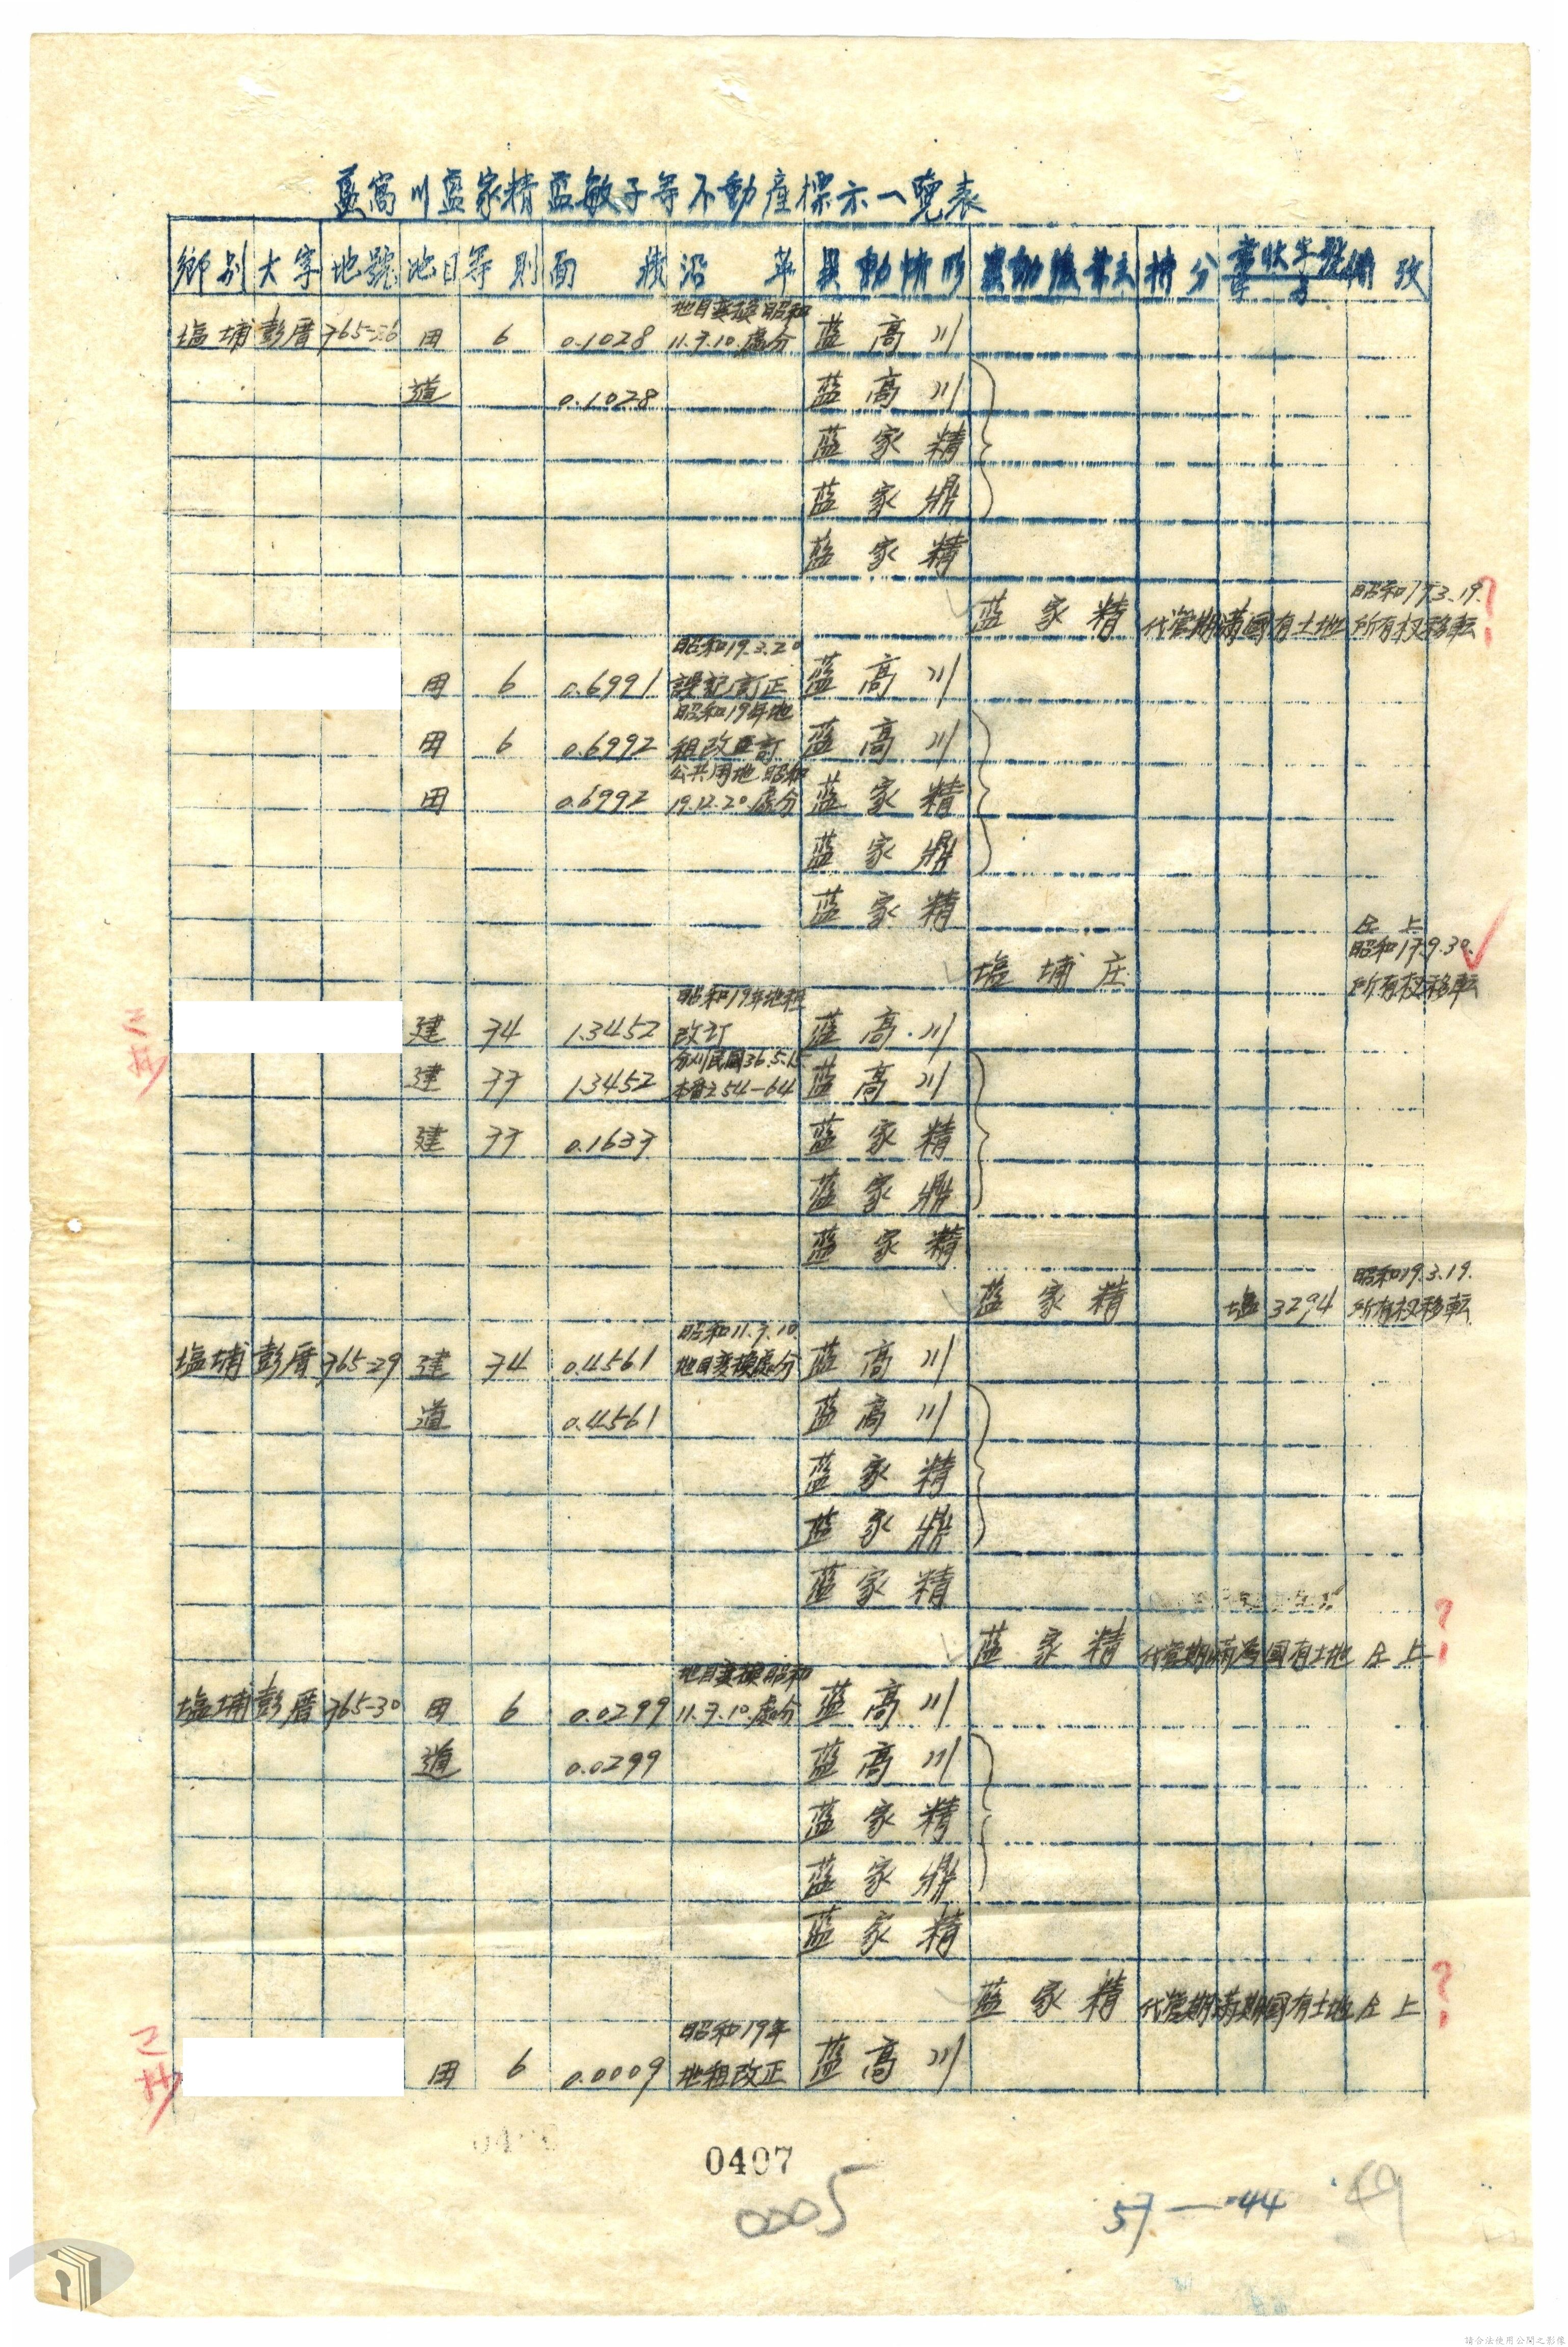 藍高川藍家精藍敏子等不動產標示一覽表
鄉別 大字 地號 地目 等則 面積 沿革 異動情形 異動後業主 持分 書狀字號 備攷
地目変換昭和
塩埔 彭厝 765-26 田 6 0.1028 11.7.10.處分 藍高川
道 0.1028 藍高川
藍家精
藍家鼎
藍家精
昭和17.3.19.
藍家精 代管期滿國有土地 所有权移転 ?
昭和19.3.20
田 6 0.6991 誤記訂正 藍高川
昭和19年地
田 6 0.6992 租改正訂 藍高川
公共用地昭和
田 0.6992 19.12.20.處分 藍家精
藍家鼎
藍家精
仝上
昭和17.9.30.
塩埔庄 所有权移転
昭和19年地租
建 74 1.3452 改訂 藍高川
分州民國36.5.15
建 77 1.3452 本番之54-64 藍高川
建 77 0.1637 藍家精
藍家鼎
藍家精
昭和19.3.19.
藍家精 塩 3294 所有权移転
昭和11.7.10.
塩埔 彭厝 765-29 建 74 0.4561 地目変換處分 藍高川
道 0.4561 藍高川
藍家精
藍家鼎
藍家精
藍家精 代管期滿為國有土地 仝上 ?
地目変換昭和
塩埔 彭厝 765-30 田 6 0.0299 11.7.10.處分 藍高川
道 0.0299 藍高川
藍家精
藍家鼎
藍家精
藍家精 代管期滿期國有土地 仝上 ?
昭和19年
田 6 0.0009 地租改正 藍高川
0407
0005
57—44 49
請合法使用公開之影像